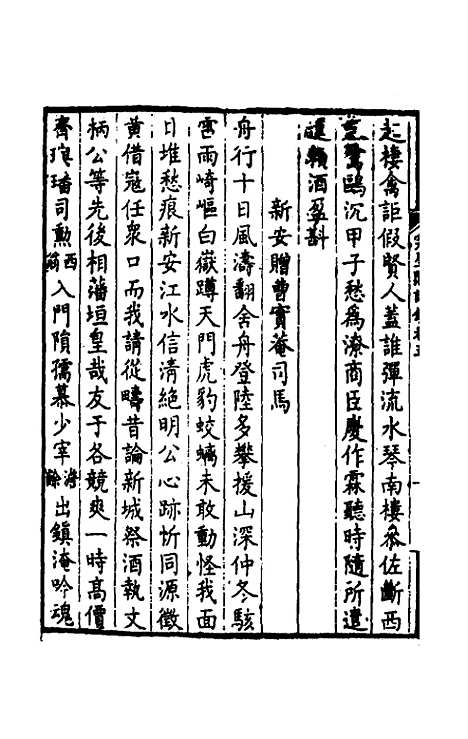 起棲禽詎假賢人蓋誰彈流水琴南樓叅佐斷西
鷺鷗沉甲子愁爲潦商臣慶作霖聽時隨所遣
賴酒盈斟
新安贈曹實菴司馬
舟行十日風濤翻舍舟登陸多攀援山深仲冬駭
雹雨崎嶇白嶽蹲天門虎豹蛟螭未敢動怪我面
日堆愁痕新安江水信清絕明公心跡忻同源徵
黃借冦任衆口而我請從疇昔論新城祭酒執文
柄公等先後相藩垣皇哉友于各競爽一時髙價
齊璵璠司勲西樵入門隕孺慕少宰澹餘出鎭淹吟魂